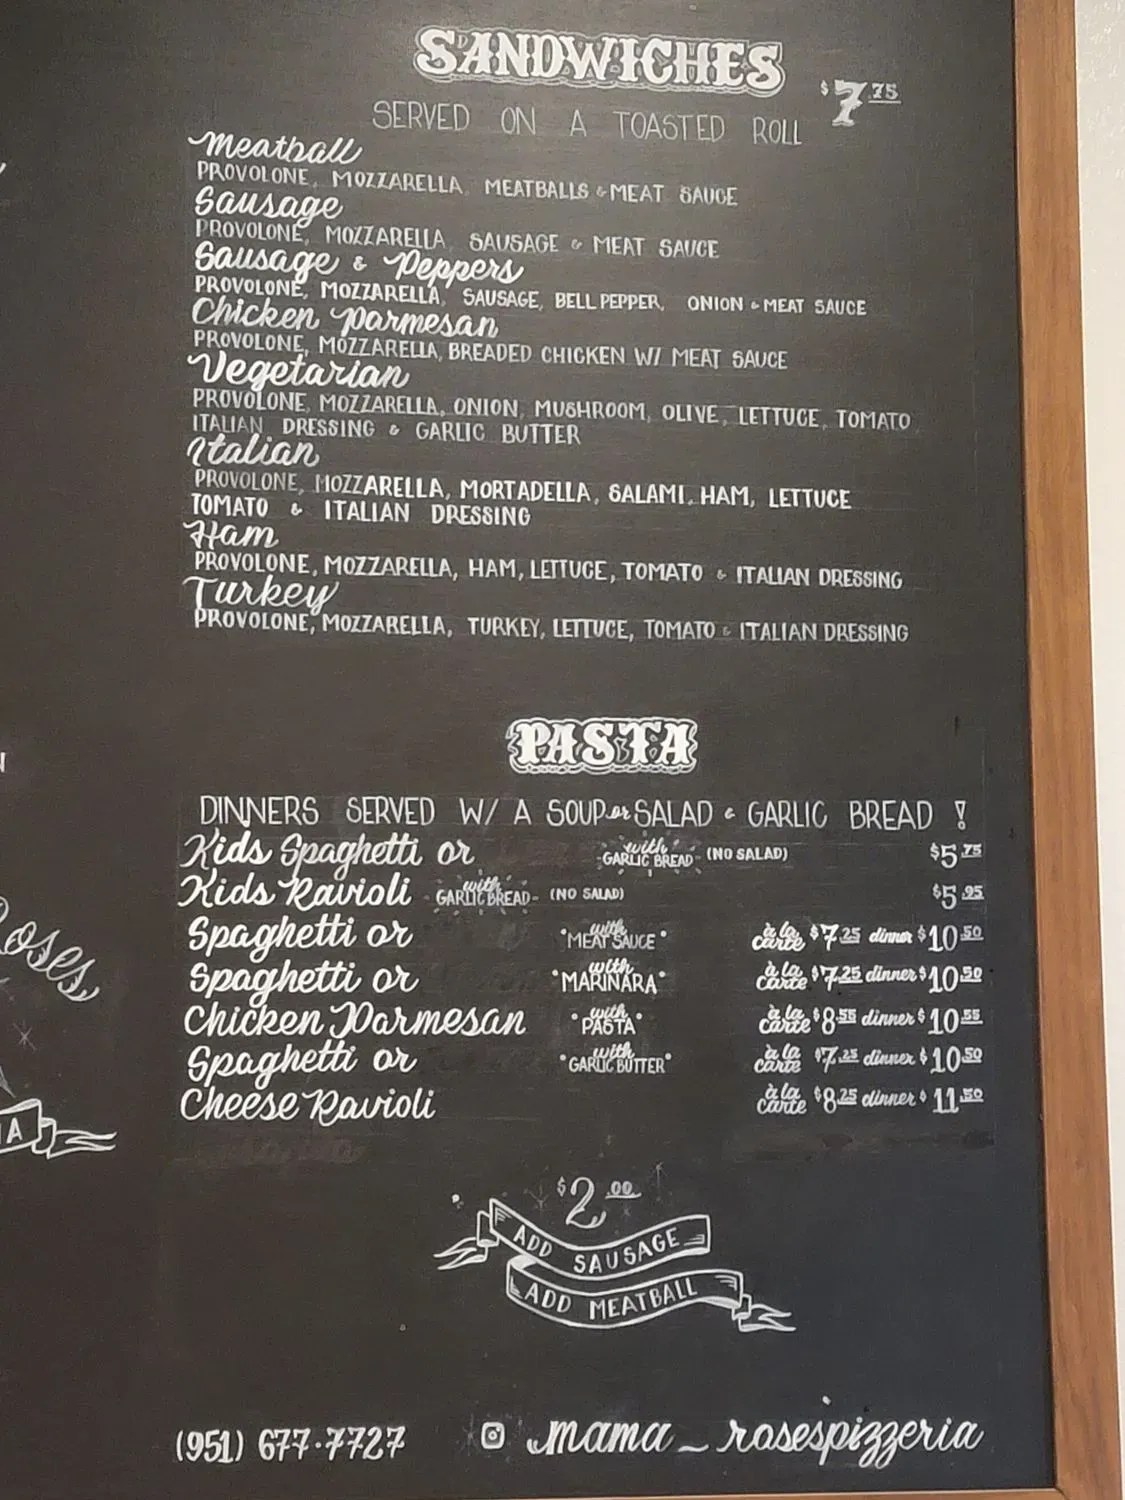 SANDWICHES
$7.75
SERVED ON A TOASTED ROLL
Meatball
PROVOLONE, MOZZARELLA, MEATBALLS & MEAT SAUCE
Sausage
PROVOLONE, MOZZARELLA, SAUSAGE & MEAT SAUCE
Sausage & Peppers
PROVOLONE, MOZZARELLA, SAUSAGE, BELL PEPPER, ONION & MEAT SAUCE
Chicken Parmesan
PROVOLONE, MOZZARELLA, BREADED CHICKEN W/ MEAT SAUCE
Vegetarian
PROVOLONE, MOZZARELLA, ONION, MUSHROOM, OLIVE, LETTUCE, TOMATO
ITALIAN DRESSING & GARLIC BUTTER
Italian
PROVOLONE, MOZZARELLA, MORTADELLA, SALAMI, HAM, LETTUCE
TOMATO & ITALIAN DRESSING
Ham
PROVOLONE, MOZZARELLA, HAM, LETTUCE, TOMATO & ITALIAN DRESSING
Turkey
PROVOLONE, MOZZARELLA, TURKEY, LETTUCE, TOMATO & ITALIAN DRESSING
PASTA
DINNERS SERVED W/ A SOUP or SALAD & GARLIC BREAD !
Kids Spaghetti or with GARLIC BREAD (NO SALAD) $5.75
Kids Ravioli with GARLIC BREAD (NO SALAD) $5.95
Spaghetti or with MEAT SAUCE à la carte $7.25 dinner $10.50
Spaghetti or with MARINARA à la carte $7.25 dinner $10.50
Chicken Parmesan with PASTA à la carte $8.55 dinner $10.55
Spaghetti or with GARLIC BUTTER à la carte $7.25 dinner $10.50
Cheese Ravioli à la carte $8.25 dinner $11.50
$2.00
ADD SAUSAGE
ADD MEATBALL
(951) 677-7727 mama_rosespizzeria
oses